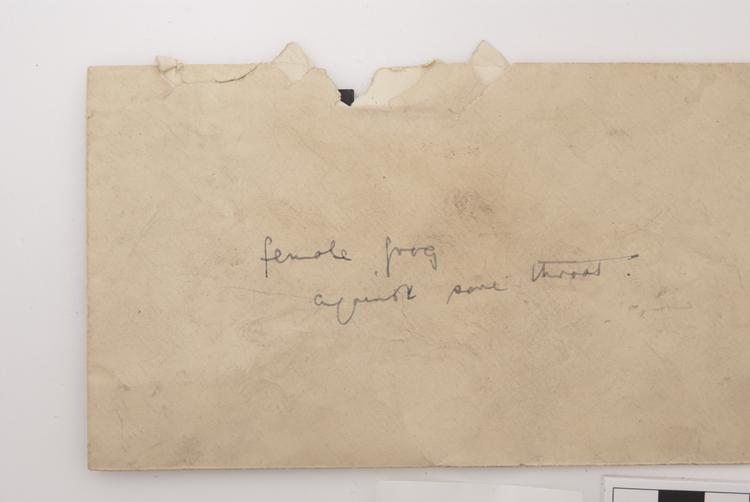 female frog
against sore throat.